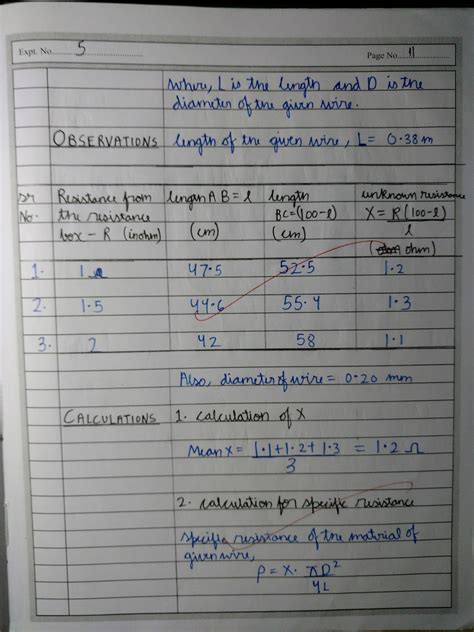 Expt. No. 5
Page No. 11
where, L is the length and D is the
diameter of the given wire.
OBSERVATIONS length of the given wire, L = 0.38 m
Sr No. Resistance from the resistance box - R (in ohm) length AB = l (cm) length BC = (100-l) (cm) unknown resistance X = R(100-l) / l (ohm)
1. 1 47.5 52.5 1.2
2. 1.5 44.6 55.4 1.3
3. 2 42 58 1.1
Also, diameter of wire = 0.20 mm
CALCULATIONS 1. calculation of X
Mean X = 1.1+1.2+1.3 / 3 = 1.2 Ω
2. calculation for specific resistance
specific resistance of the material of
given wire,
ρ = X. πD² / 4L